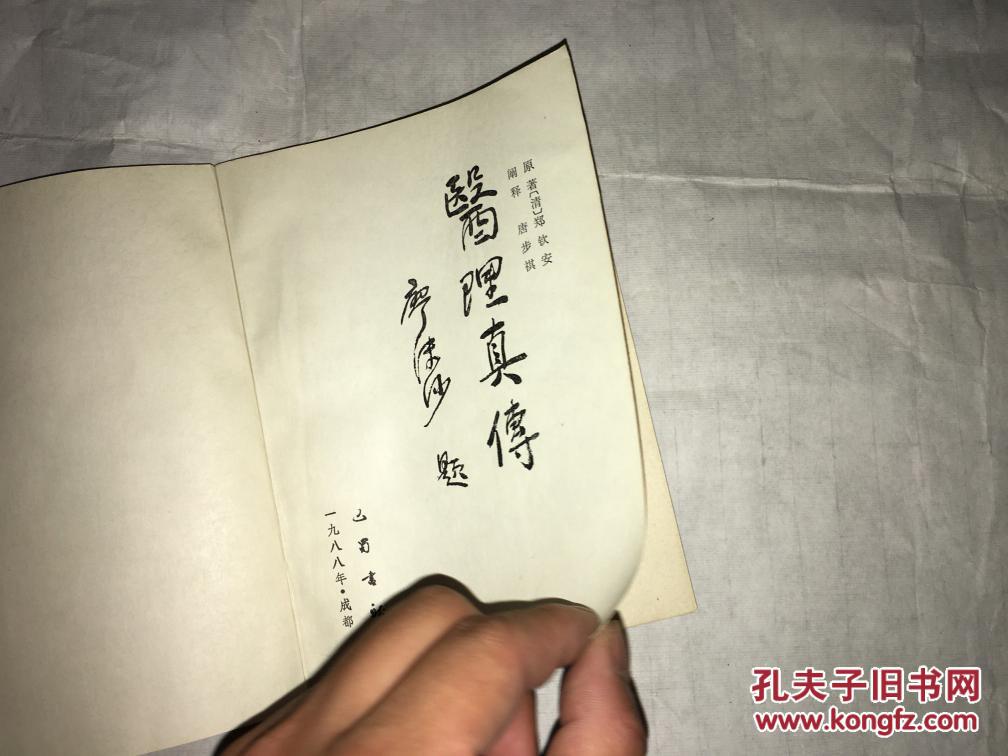 原著〔清〕郑钦安
阐释 唐步祺
醫理真傳
廖沫沙
题
巴蜀书社
一九八八年·成都
孔夫子旧书网
www.kongfz.com